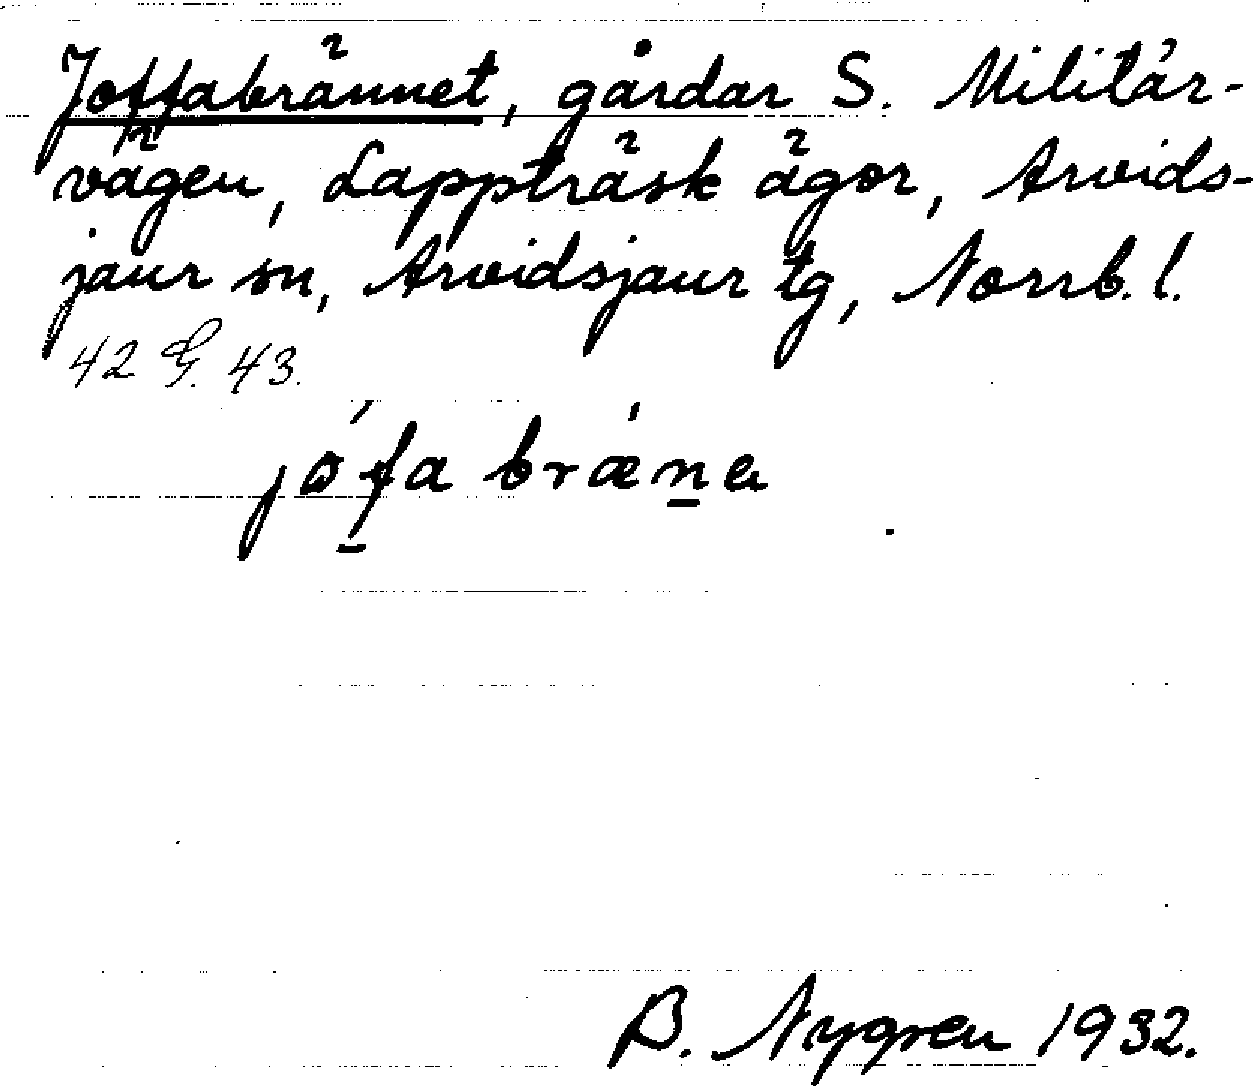 Joffabrännet, gårdar S. Militär-
vägen, Lappträsk ägor, Arvids-
jaur sn, Arvidsjaur tg, Norrb. l.
42 G. 43.
jo̍f̲a bræ̍n̲a
B. Nygren 1932.